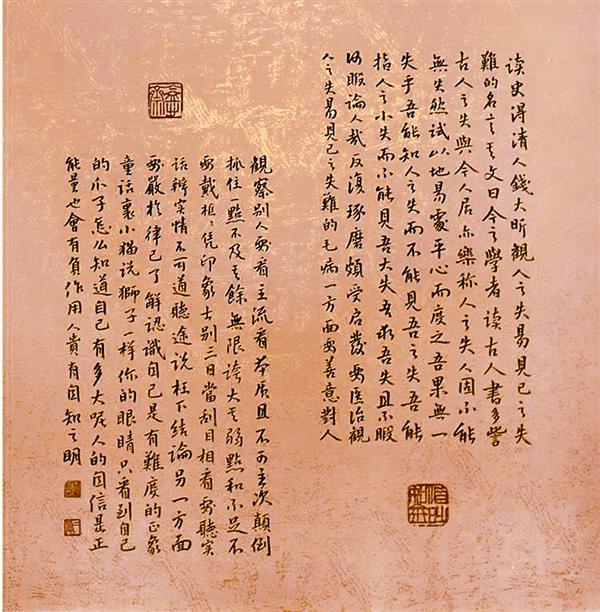 读史得清人錢大昕觀人之失易見己之失
難的名言其文曰今之學者读古人書多訾
古人之失與今人居亦樂称人之失人固不能
無失然試以地易處平心而度之吾果無一
失乎吾能知人之失而不能見吾之失吾能
指人之小失而不能見吾大失吾求吾失且不暇
何暇論人哉反復琢磨頗受启發要医治觀
人之失易見己之失難的毛病一方面要善意對人
觀察别人要看主流看本质且不可主次颠倒
抓住一點不及其餘無限誇大其弱點和不足不
要戴框框凭印象士别三日當刮目相看要聽实
话辩实情不可道聽途说枉下结論另一方面
要嚴於律己了解認識自己是有難度的正象
童话裏小猫说獅子一样你的眼睛只看到自己
的爪子怎么知道自己有多大呢人的自信是正
能量也會有负作用人貴有自知之明